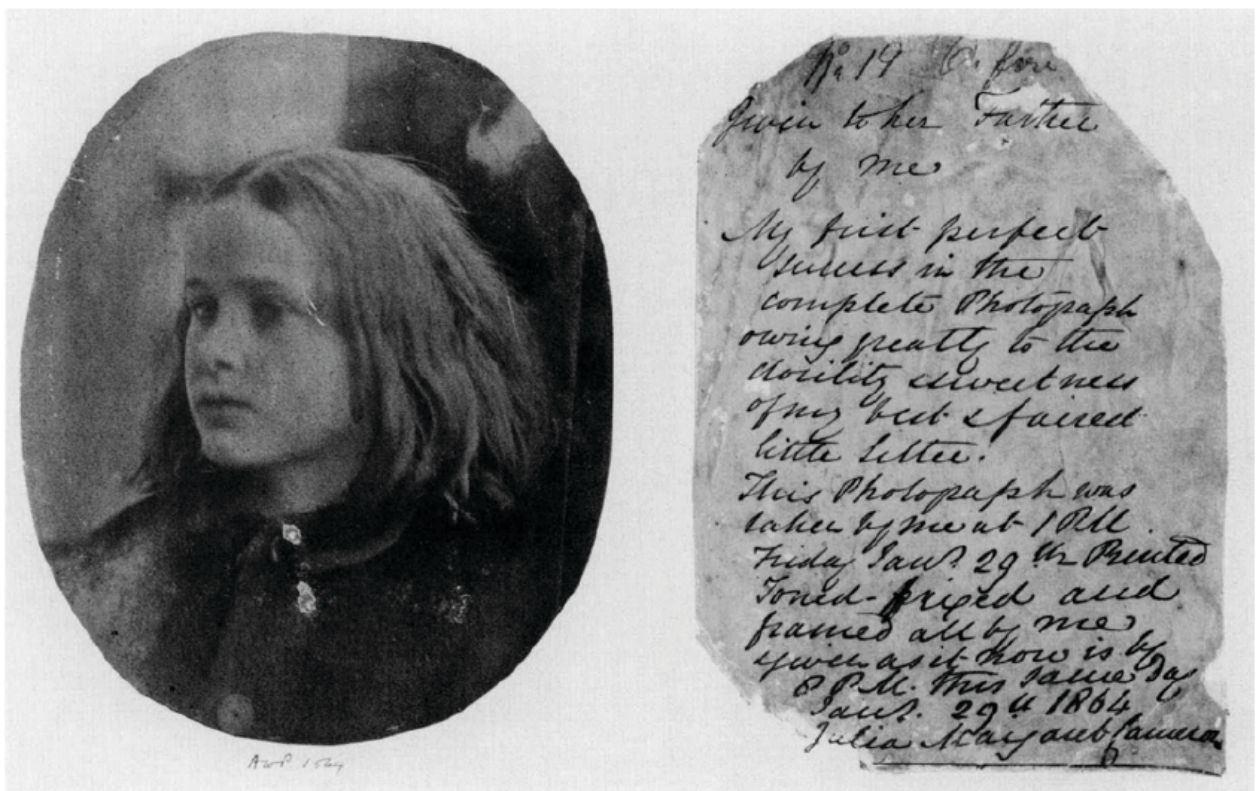 No 19
Given to her Father
by me
My first perfect
success in the
complete Photograph
owing greatly to the
docility & sweetness
of my best & fairest
little sitter.
This Photograph was
taken by me at 1 P.M.
Friday Jany. 29th Printed
Toned - fixed and
framed all by me
& given as it now is by
8 P.M. this same day
Jany. 29th 1864
Julia Margaret Cameron